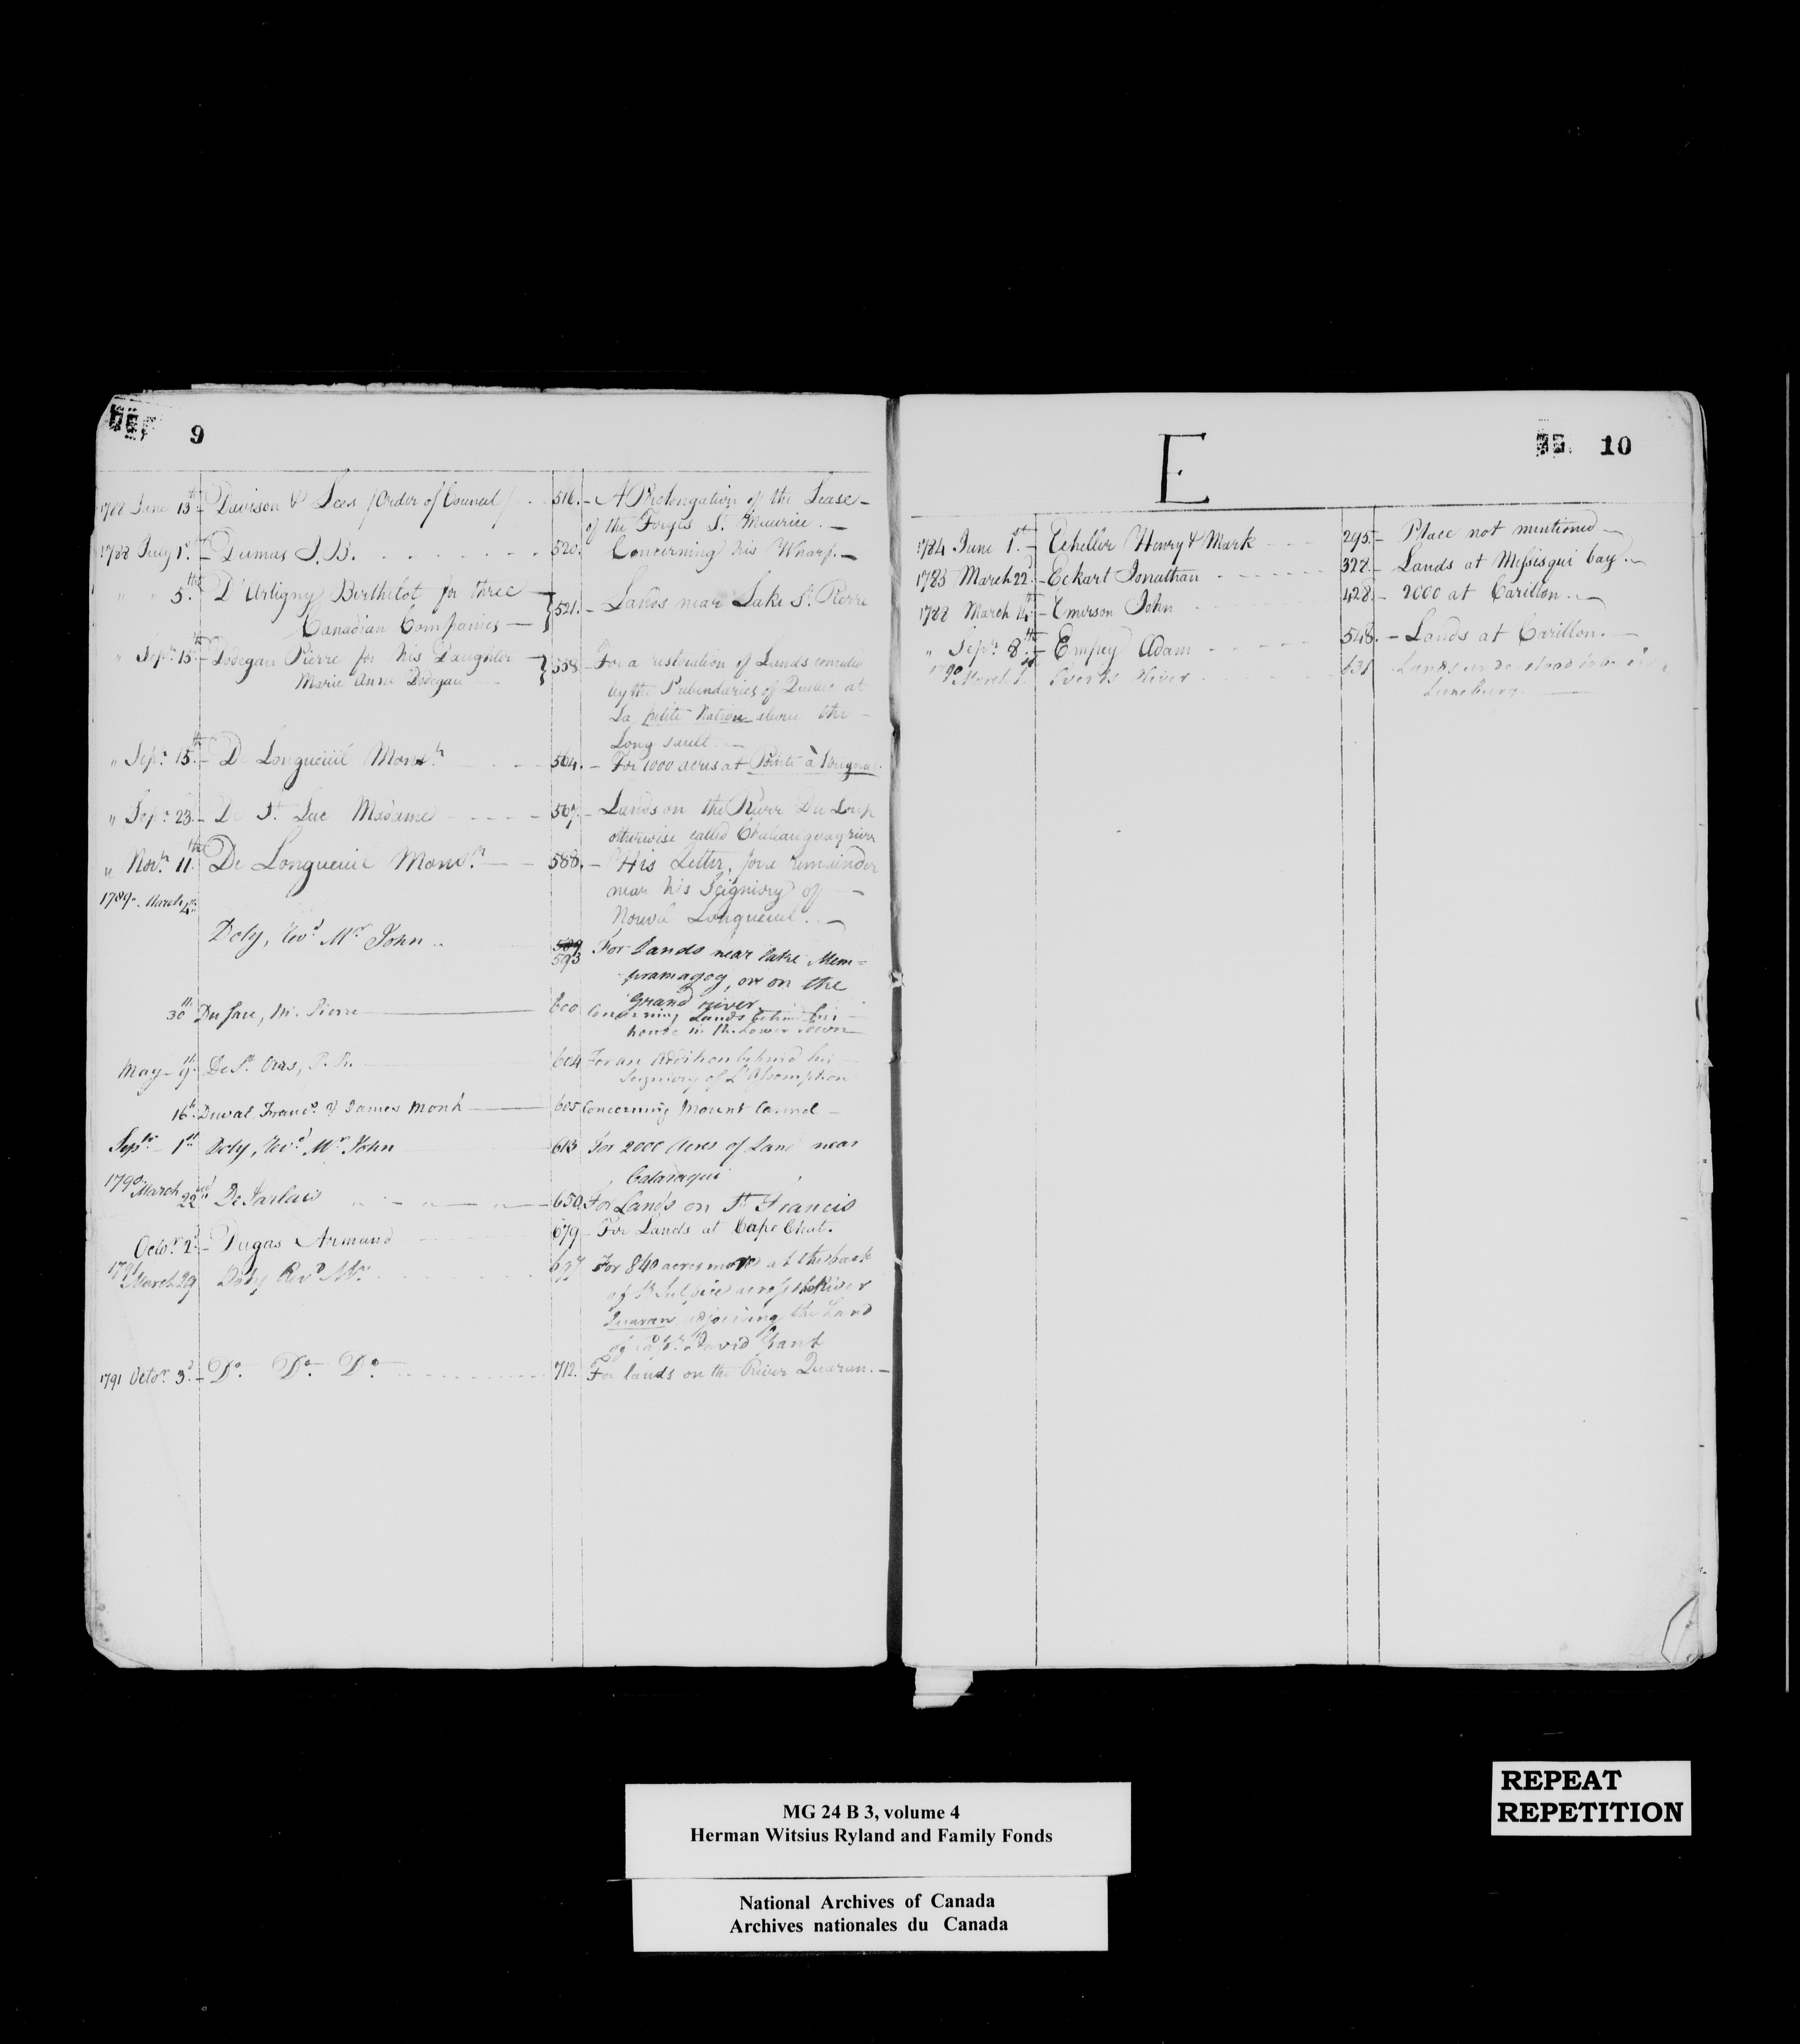 9
1788 June 13th - Davison & Lees /Order of Council/ - 516. - A Prolongation of the Lease
of the Forges St. Maurice. -
1788 July 1st - Dumas J. B. 520. Concerning his Wharf. -
" " 5th D'Artigny Berthelot for three
Canadian Companies - } 521. - Lands near Lake St. Pierre
" Sepr. 15th - Dodegau Pierre for his Daughter
Marie Anne Dodegau } 558 - For a restoration of Lands conceded
by the Prebendaries of Quebec at
La petite Nation above the
Long sault. -
" Sepr. 15th - De Longueuil Monsr. 564. - For 1000 acres at Pointe à l'orignal.
" Sepr. 23. - De St. Luc Madame 567. - Lands on the River Du Loup
otherwise called Chateauguay river
" Novr. 11th De Longueuil Monsr. 588. - His Letter, for a remainder
near his Seigniory of -
Nouvel Longueuil. -
1789 - March 4th
Doty, Revd. Mr. John .. 589 593 For Lands near lake Mem=
phramagog, or on the
Grand river.
30th Du fau, Mr. Pierre 600 Concerning Lands behind his
house in the Lower Town
May - 9th De St. Ours, P. R. 604 For an Addition behind his
Seigniory of L'Assomption
16th Duval, Francs. & James Monk 605 Concerning Mount Carmel -
Septr - 1st Doty, Revd. Mr. John 613 For 2000 Acres of Land near
Cataraqui
1790 March 22nd De 650. For Lands on St Francis
Octor. 2d - Dugas Armand 679 - For Lands at Cape Chat.
1791 March 29 Doty Revd. Mr. 697 For 840 acres more at the back
of St. Sulpice across the River
Quaran adjoining the Land
of Capt. David Grant
1791 Octor. 3d - Do. Do. Do. 712. For lands on the River Quaran. -
10
E
1784 June 1st. - Echeller Henry & Mark 295. - Place not mentioned -
1783 March 22d - Eckart Jonathan 328. - Lands at Missisqui bay. -
1788 March 14. - Emerson John 428. - 2000 at Carillon. -
" Sepr. 8th - Empey Adam 548. - Lands at Carillon. -
1790 March 1st Everts Oliver 631 Lands understood to be in
Luneburg.
MG 24 B 3, volume 4
Herman Witsius Ryland and Family Fonds
National Archives of Canada
Archives nationales du Canada
REPEAT
REPETITION